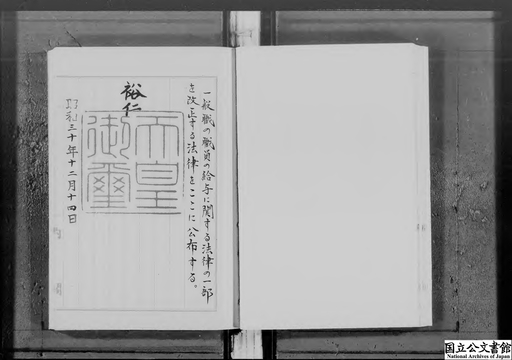 一般職の職員の給与に関する法律の一部
を改正する法律をここに公布する。
裕仁
天皇
御璽
昭和三十年十二月十四日
国立公文書館
National Archives of Japan